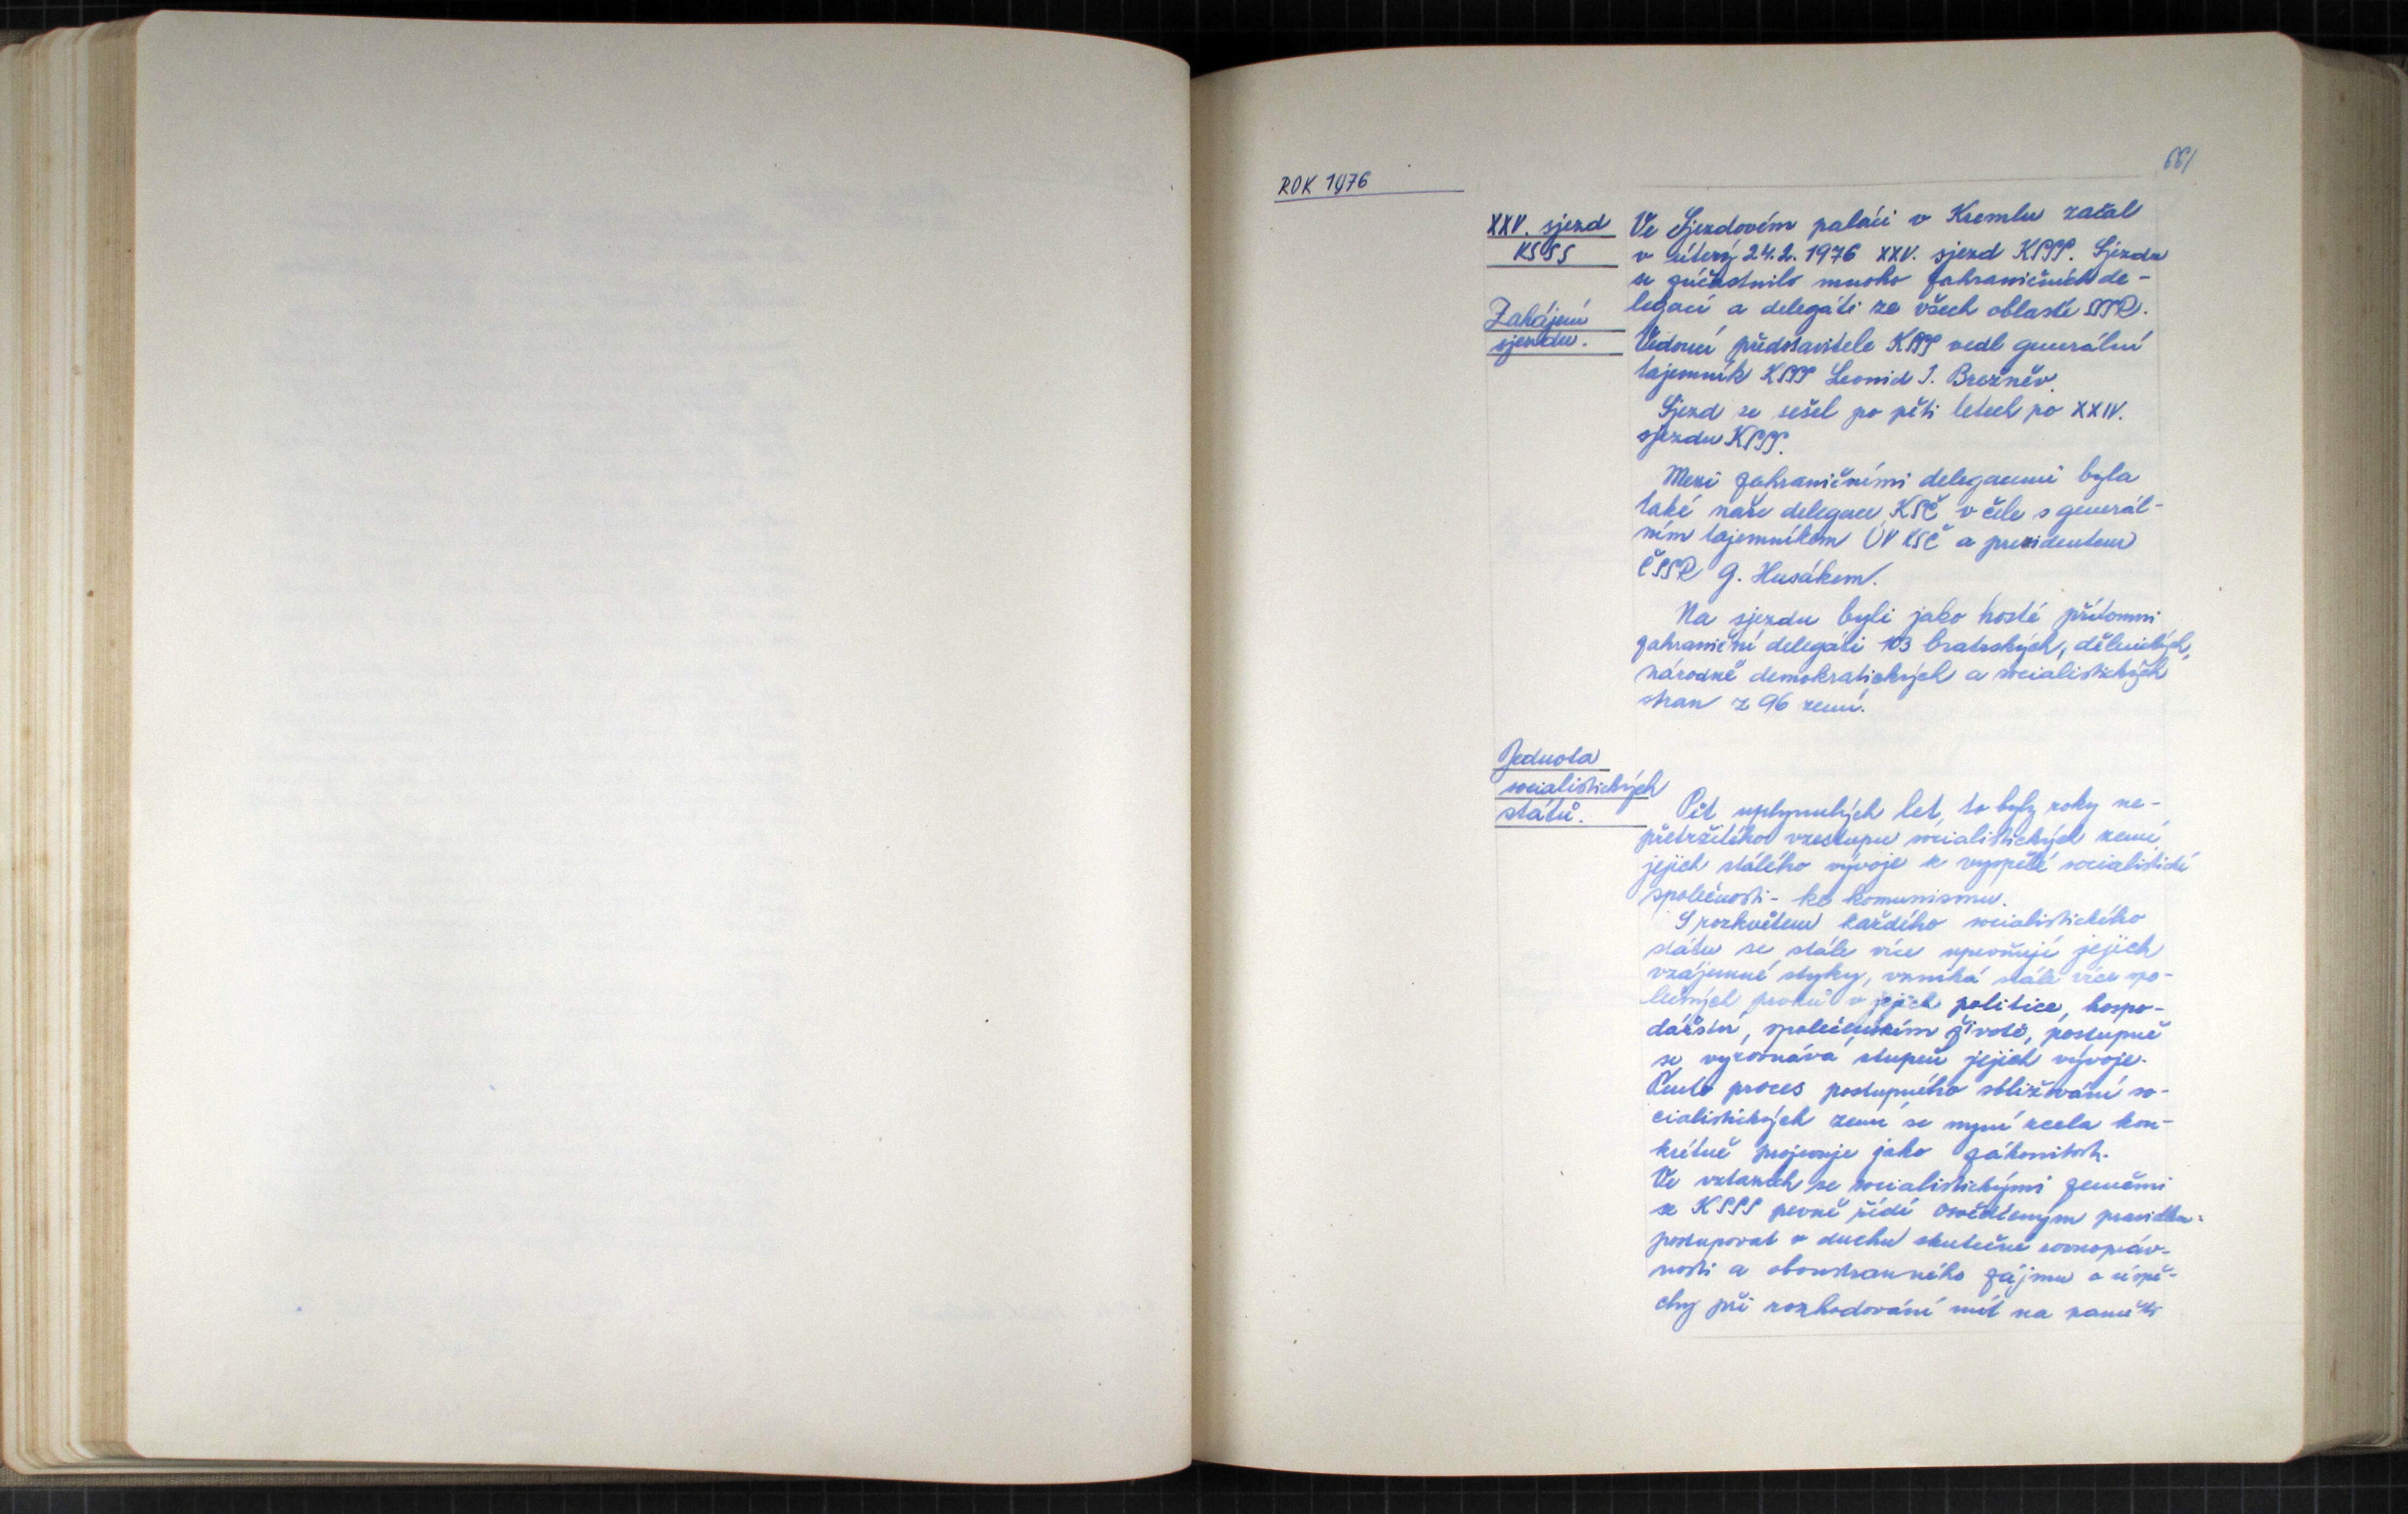 661
ROK 1976
XXV. sjezd
KSSS
Zahájení
sjezdu.
Ve Sjezdovém paláci v Kremlu začal
v úterý 24.2.1976 XXV. sjezd KSSS. Sjezdu
se zúčastnilo mnoho zahraničních de-
legací a delegáti ze všech oblastí SSSR.
Vedoucí představitele KSSS vedl generální
tajemník KSSS Leonid I. Brežněv.
Sjezd se sešel po pěti letech po XXIV.
sjezdu KSSS.
Mezi zahraničními delegacemi byla
také naše delegace KSČ v čele s generál-
ním tajemníkem ÚV KSČ a prezidentem
ČSSR G. Husákem.
Na sjezdu byli jako hosté přítomni
zahraniční delegáti 103 bratrských, dělnických,
národně demokratických a socialistických
stran z 96 zemí.
Jednota
socialistických
států.
Pět uplynulých let, to byly roky ne-
přetržitého vzestupu socialistických zemí,
jejich stálého vývoje k vyspělé socialistické
společnosti - ke komunismu.
S rozkvětem každého socialistického
státu se stále více upevňují jejich
vzájemné styky, vzniká stále více spo-
lečných prvků v jejich politice, hospo-
dářství, společenském životě, postupně
se vyrovnává stupeň jejich vývoje.
Tento proces postupného sbližování so-
cialistických zemí se nyní zcela kon-
krétně projevuje jako zákonitost.
Ve vztazích se socialistickými zeměmi
se KSSS pevně řídí osvědčeným pravidlem:
postupovat v duchu skutečné rovnopráv-
nosti a oboustranného zájmu o úspě-
chy při rozhodování mít na paměti